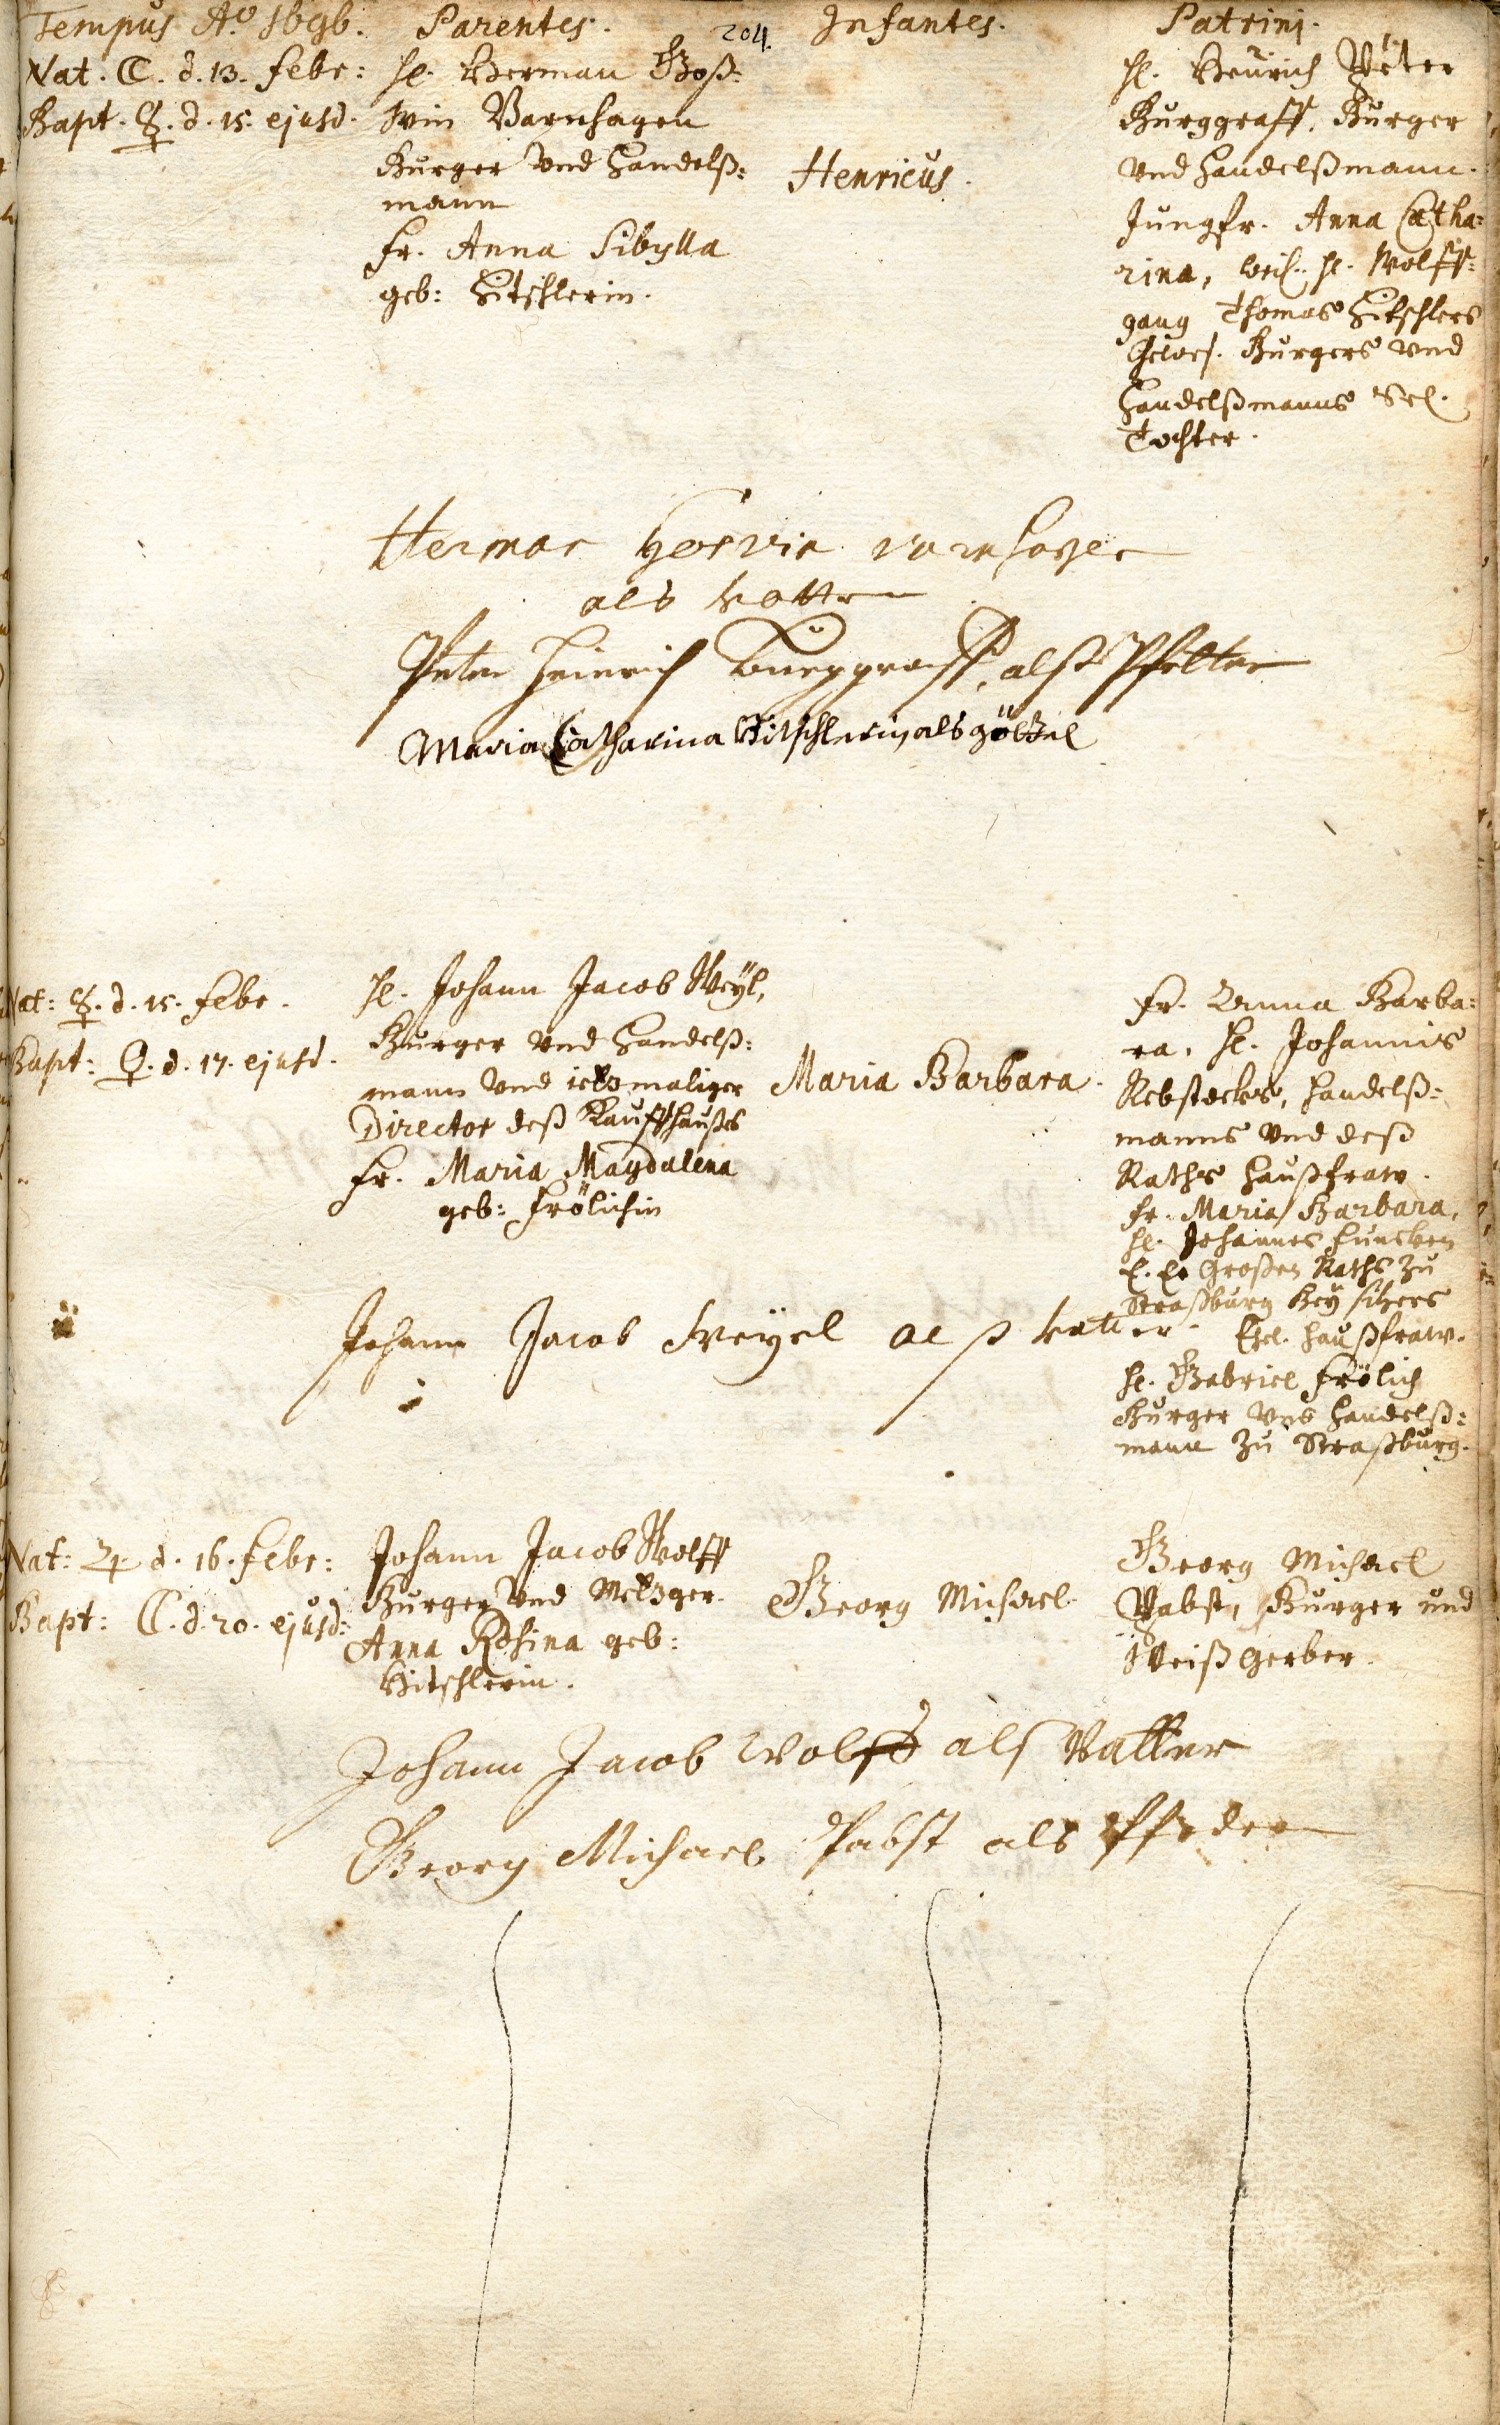 Tempus Aº. 1696. Parentes. 204. Infantes. Patrini.
Nat. ☾. d. 13. Febr:
Bapt. ☿. d. 15. ejusd.
H. Herman Goß=
win Varnhagen
Burger vnd Handelß=
mann
Fr. Anna Sibylla
geb: Hitschlerin.
Henricus.
H. Henrich Peter
Burggraff, Burger
vnd Handelßmann.
Jungfr. Anna Catha=
rina, weil. H. Wolff=
gang Thomas Hitschlers
Gewes. Burgers vnd
Handelßmanns Sel.
Tochter.
Herman Gosvin varnhagen
als vatter
Peter Heinrich Burggraff, alß Pfetter
Maria Catharina Hitschlerin als göttel
Nat: ☿. d. 15. Febr.
Bapt: ♀. d. 17. ejusd.
H. Johann Jacob Weyl,
Burger vnd Handelß=
mann vnd ietzmaliger
Director deß Kauffhaußes
Fr. Maria Magdalena
geb: Frölichin
Maria Barbara.
Fr. Anna Barba=
ra, H. Johannis
Rebstocks, Handelß=
manns vnd deß
Raths Haußfraw.
Fr. Maria Barbara,
H. Johannes Funcken
E. E. Großen Raths zu
Straßburg Beysitzers
Ehel. Haußfraw.
H. Gabriel Frölich
Burger vnd Handelß=
mann zu Straßburg.
Johann Jacob Weyel alß vatter
Nat: ♃ d. 16. Febr:
Bapt: ☾. d. 20. ejusd:
Johann Jacob Wolff
Burger vnd Metzger.
Anna Rosina geb:
Hitschlerin.
Georg Michael.
Georg Michael
Pabst, Burger und
Weißgerber.
Johann Jacob Wolff als Vatter
Georg Michael Pabst als Pfeder